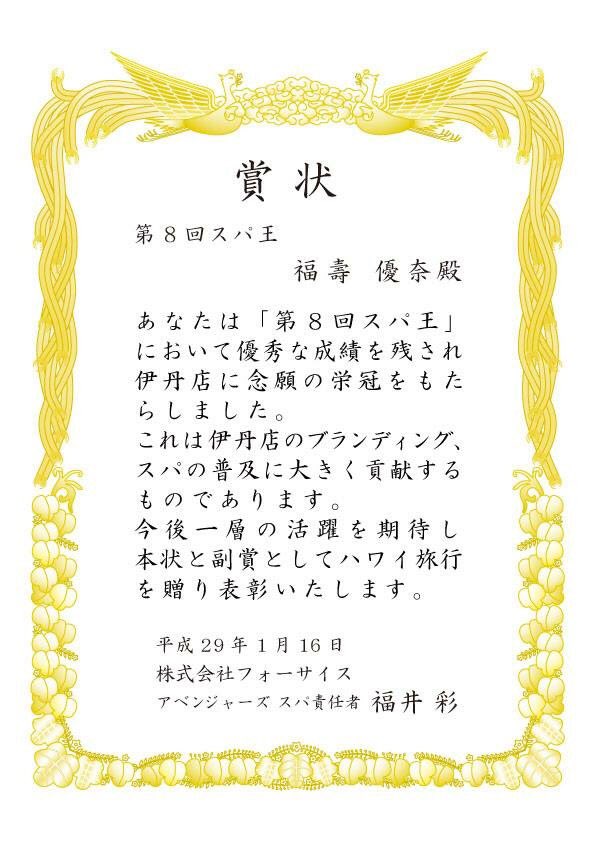 賞状
第8回スパ王
福壽 優奈殿
あなたは「第8回スパ王」
において優秀な成績を残され
伊丹店に念願の栄冠をもた
らしました。
これは伊丹店のブランディング、
スパの普及に大きく貢献する
ものであります。
今後一層の活躍を期待し
本状と副賞としてハワイ旅行
を贈り表彰いたします。
平成29年1月16日
株式会社フォーサイス
アベンジャーズ スパ責任者 福井 彩